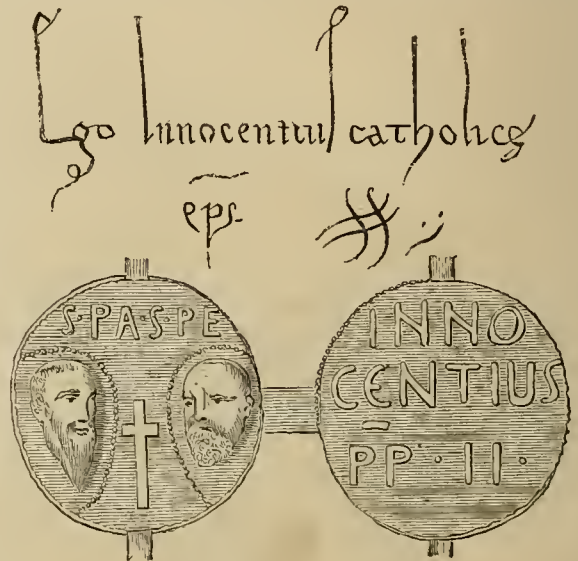 Ego Innocentius catholicę
ep̅s.
S·PA·S·PE
INNO
CENTIUS
P̅P·II·